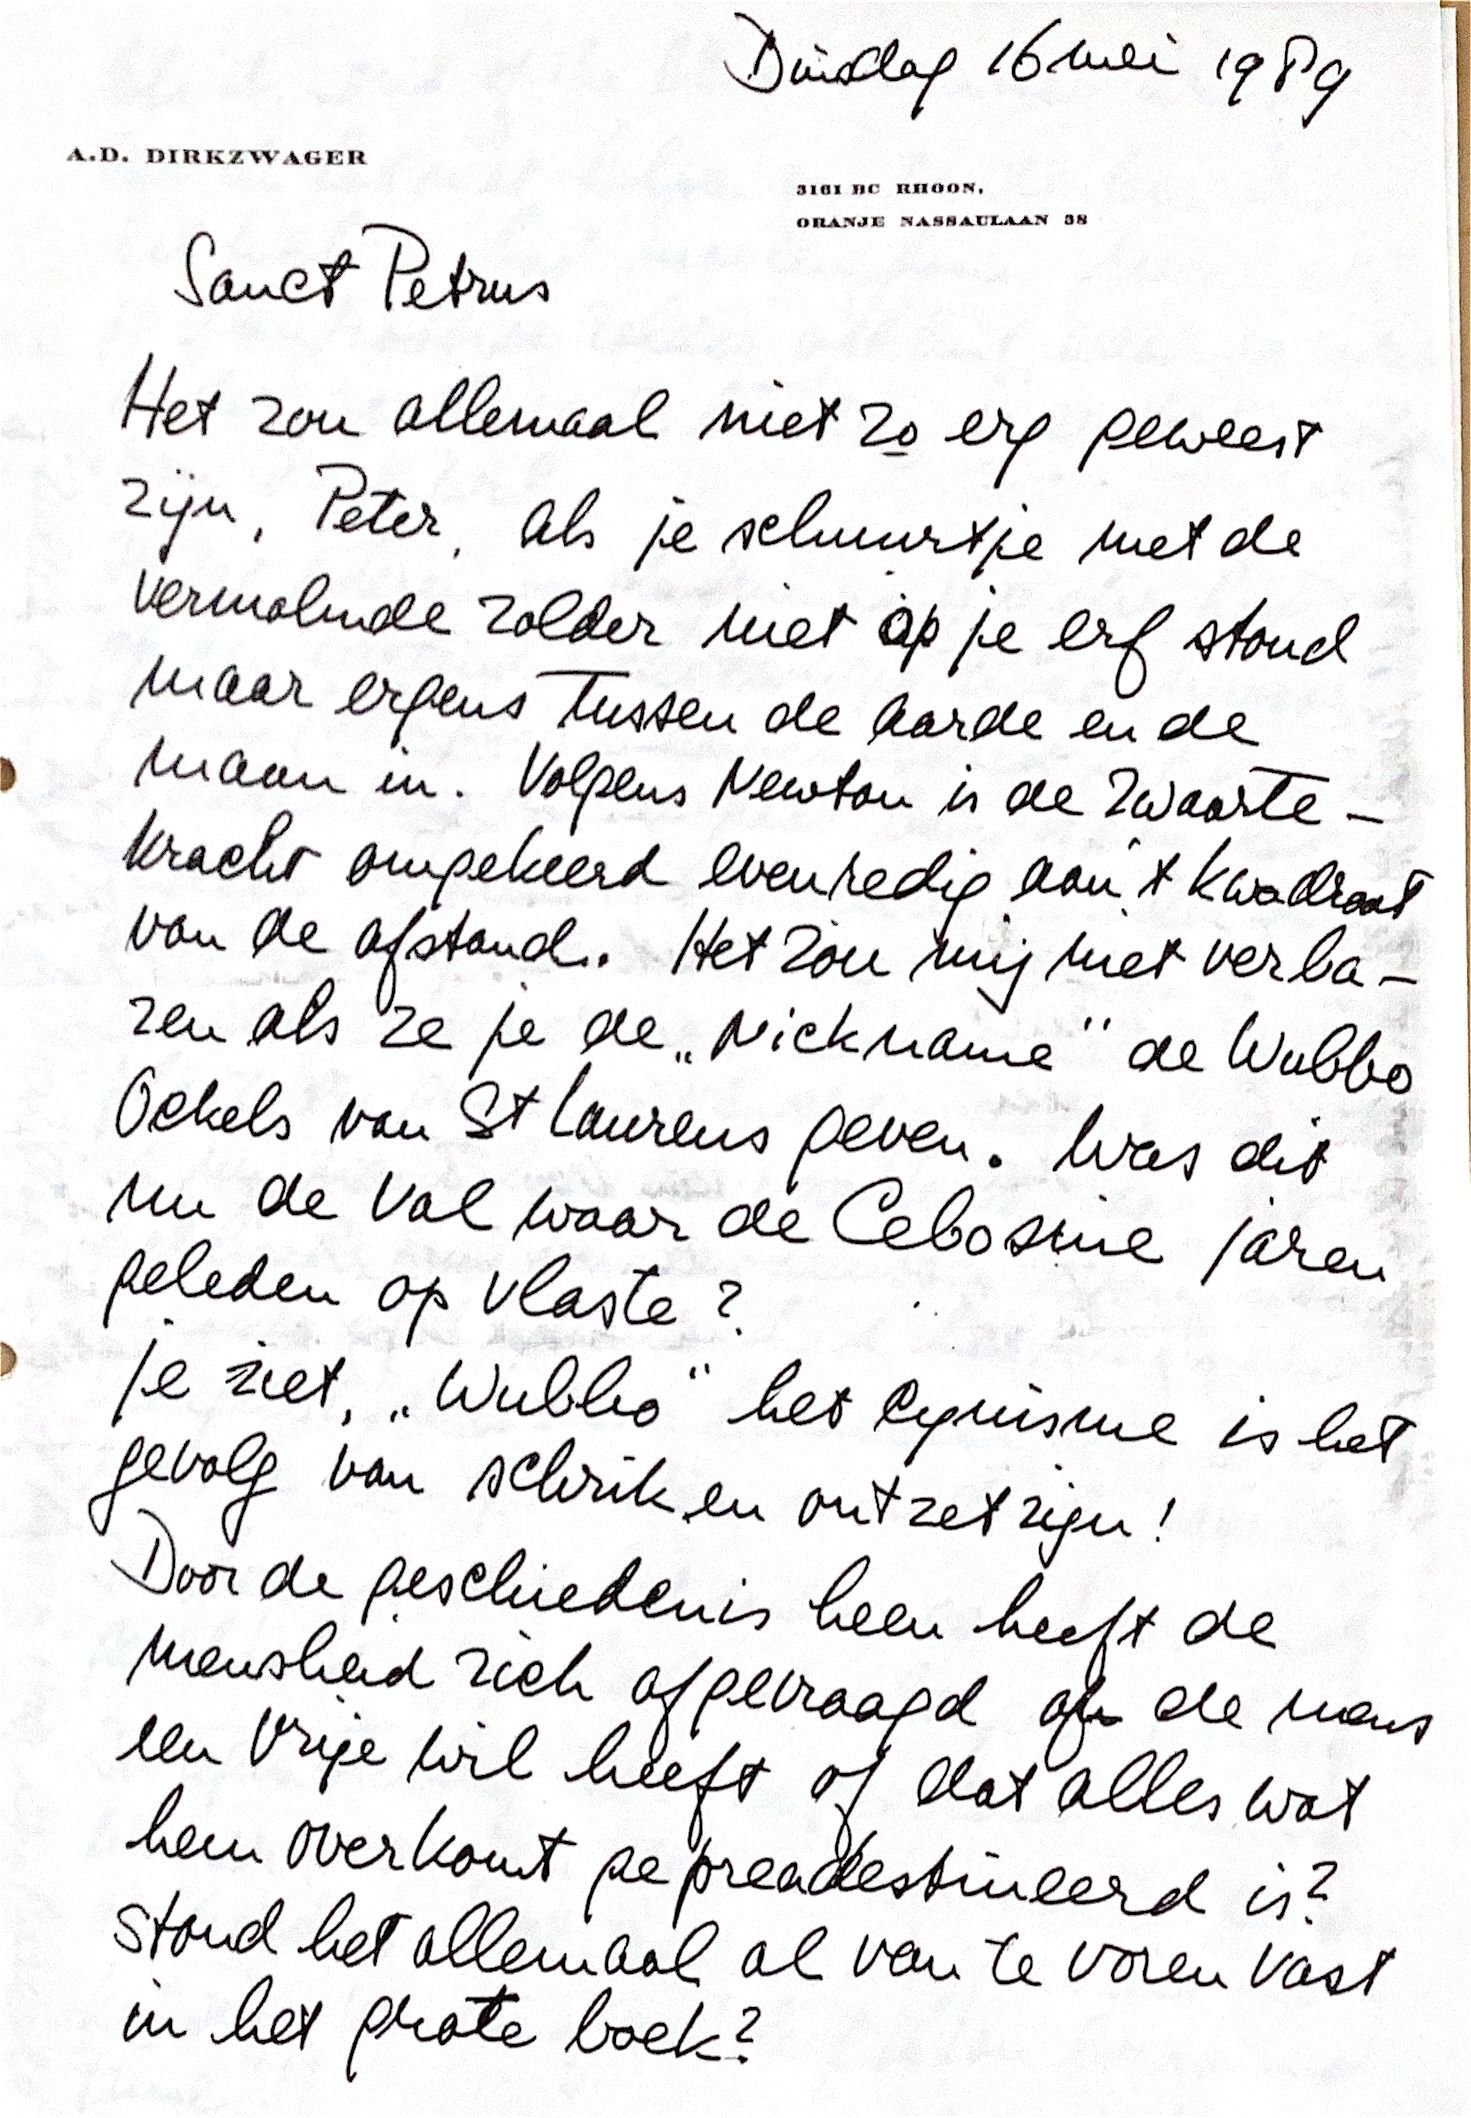 Dinsdag 16 mei 1989
A.D. DIRKZWAGER
3161 BC RHOON,
ORANJE NASSAULAAN 38
Sanct Petrus
Het zou allemaal niet zo erg geweest
zijn, Peter, als je schuurtje met de
vermolmde zolder niet op je erf stond
maar ergens tussen de aarde en de
maan in. Volgens Newton is de zwaarte-
kracht omgekeerd evenredig aan 't kwadraat
van de afstand. Het zou mij niet verba-
zen als ze je de „Nickname" de Wubbo
Ockels van St Laurens geven. Was dit
nu de val waar de Cebosine jaren
geleden op vlaste?
je ziet, „Wubbo" het cynisme is het
gevolg van schrik en ontzet zijn!
Door de geschiedenis heen heeft de
mensheid zich afgevraagd of de mens
een vrije wil heeft of dat alles wat
hem overkomt gepreadestineerd is?
Stond het allemaal al van te voren vast
in het grote boek?